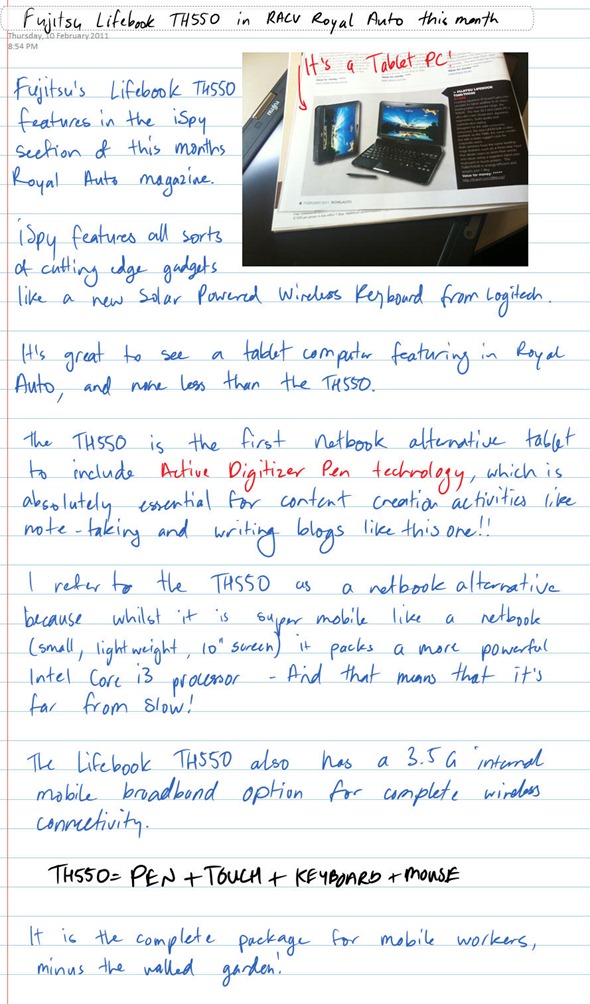 Fujitsu Lifebook TH550 in RACV Royal Auto this month
Thursday, 10 February 2011
8:54 PM
It's a Tablet PC!
Fujitsu's Lifebook TH550
features in the iSpy
section of this months
Royal Auto magazine.
iSpy features all sorts
of cutting edge gadgets
like a new Solar Powered Wireless Keyboard from Logitech.
It's great to see a tablet computer featuring in Royal
Auto, and none less than the TH550.
The TH550 is the first netbook alternative tablet
to include Active Digitizer Pen technology, which is
absolutely essential for content creation activities like
note-taking and writing blogs like this one!!
I refer to the TH550 as a netbook alternative
because whilst it is super mobile like a netbook
(small, lightweight, 10" screen) it packs a more powerful
Intel Core i3 processor - And that means that it's
far from slow!
The Lifebook TH550 also has a 3.5G internal
mobile broadband option for complete wireless
connectivity.
TH550 = PEN + TOUCH + KEYBOARD + MOUSE
It is the complete package for mobile workers,
minus the walled garden!